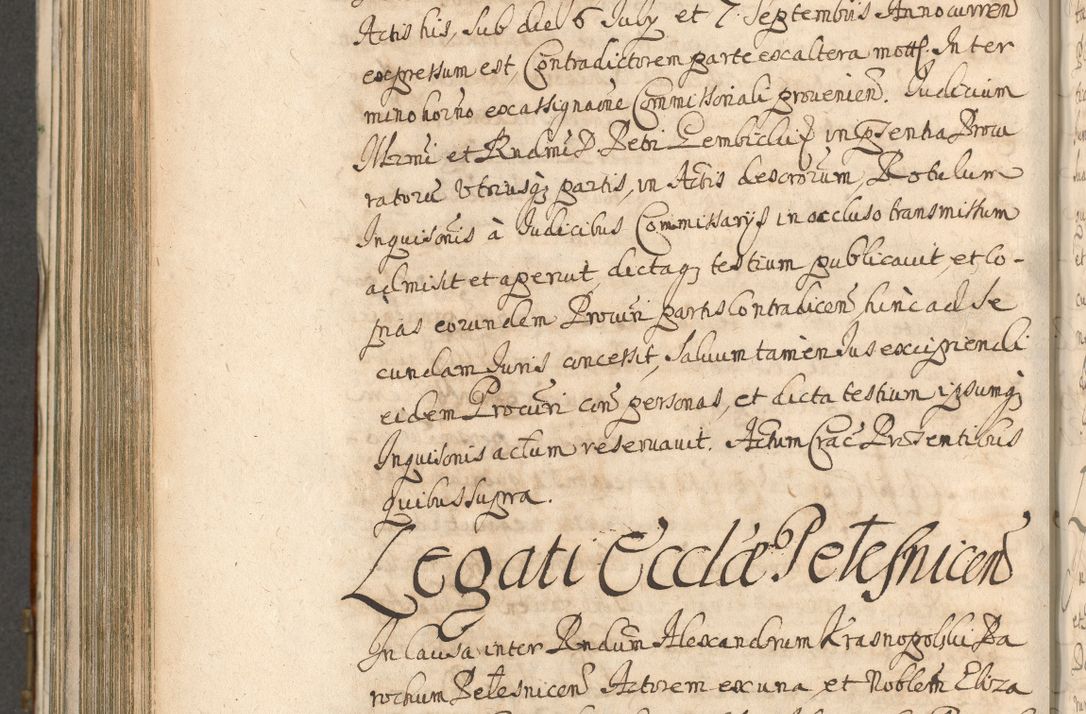 Actis his, sub die 6 July et 7 Septembris Anno curren
expressum est, Contradictorem parte ex altera mott. In ter
mino horno ex assignaone Commissoriali provenien. Iudicium
Illrmi et Rndmi D. Petri Gembicky in psentia Procu
ratoru Utriusq partis, in Actis descriorum, Rotulum
Inquisonis à Iudicibus Commissarys in occluso transmissum
admisit et aperuit, dictaq testium publicavit, et co-
pias eorundem Procuri partis Contradicen hinc ad Se
cundam Iuris concessit, salvum tamen Ius excipiendi
eidem Procuri con personas, et dicta testium ipsumq
Inquisonis actum reservavit. Actum Crac Prsentibus
quibus supra.
Legati Ecclæ Pelesnicen
In Causa inter Rndum Alexandrum Krasnopolski Pa
rochum Pelesnicen Actorem ex una et Noblem Eliza